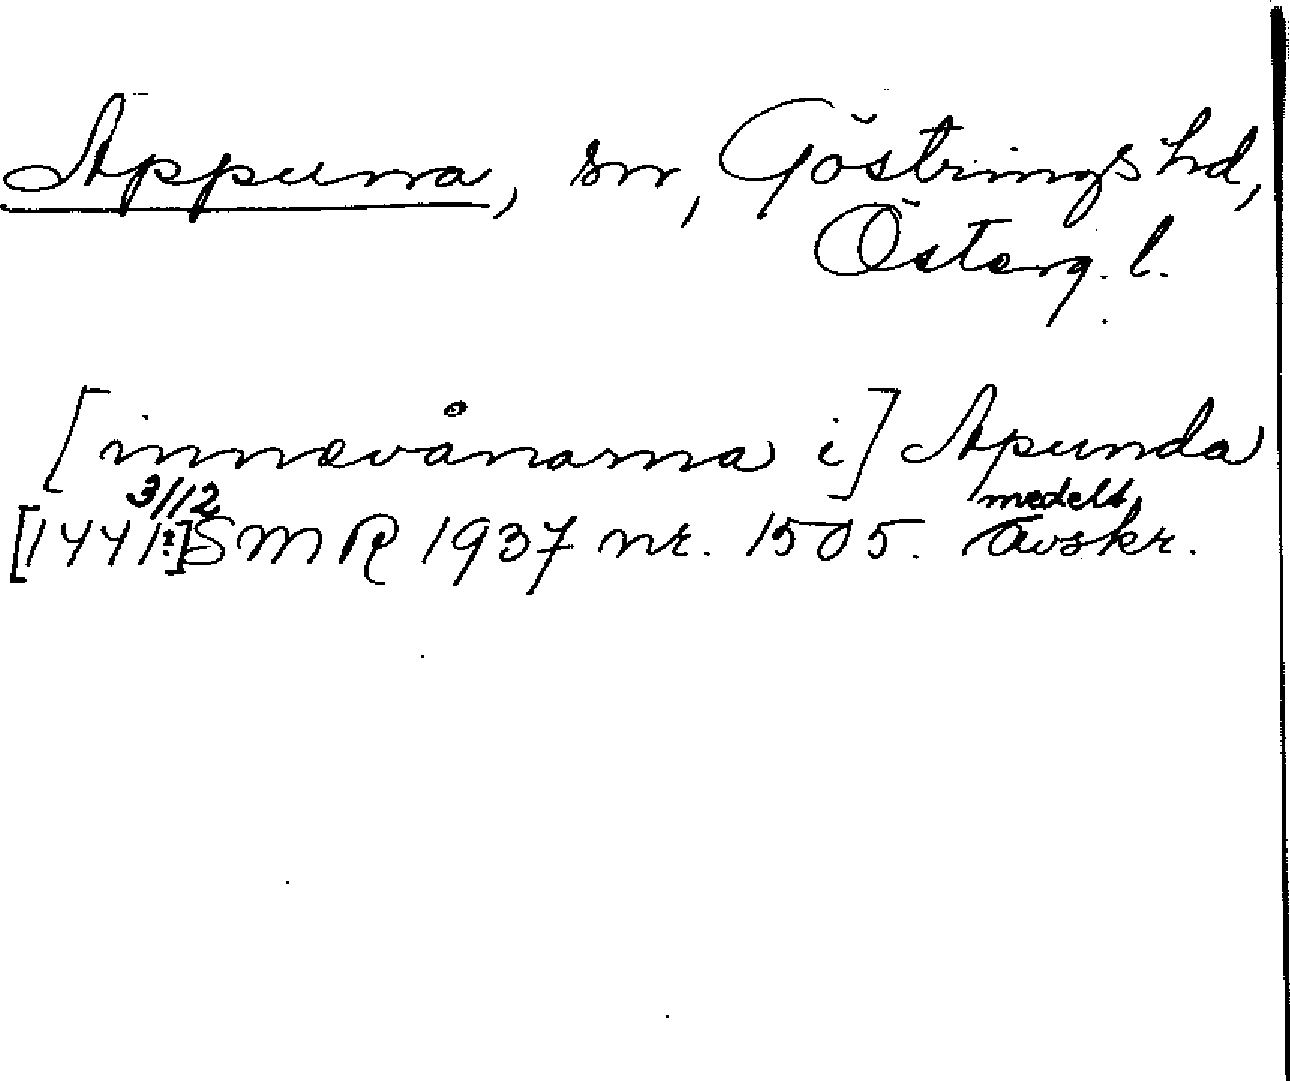 Appuna, sn, Göstrings hd,
Österg. l.
[innevånarna i] Apunda
3/12 medelt.
[1441?] SMR 1937 nr. 1505. avskr.